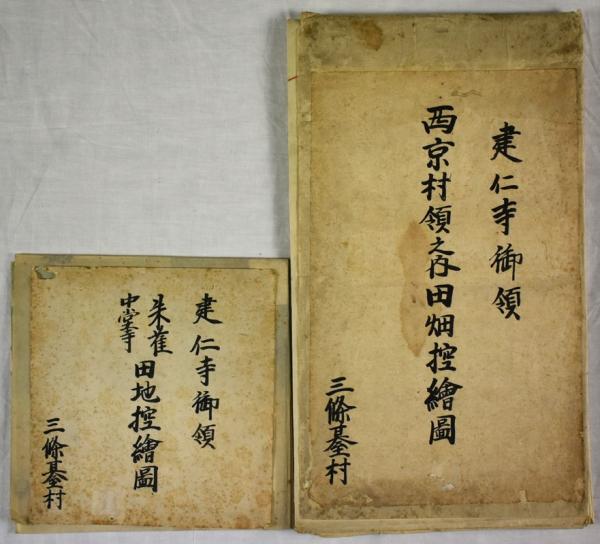 建仁寺御領
西京村領之内田畑控繪圖
三條臺村
建仁寺御領
朱雀
中堂寺
田地控繪圖
三條臺村